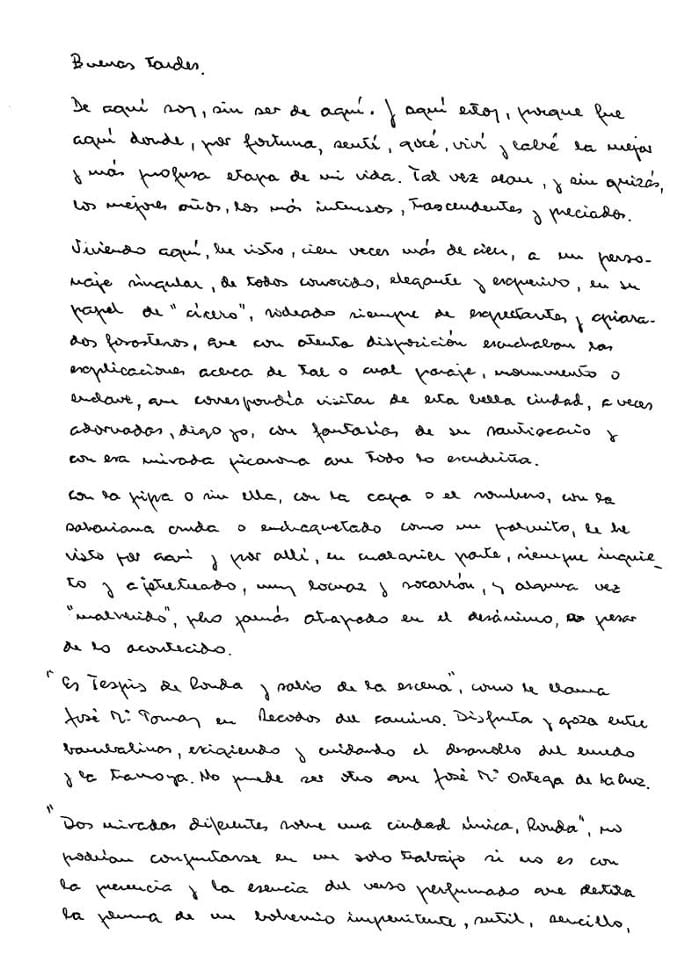 Buenas tardes.
De aquí soy, sin ser de aquí. Y aquí estoy, porque fue
aquí donde, por fortuna, sentí, gocé, viví y labré la mejor
y más profusa etapa de mi vida. Tal vez sean, y sin quizás,
los mejores años, los más intensos, trascendentes y preciados.
Viviendo aquí, he visto, cien veces más de cien, a un perso-
naje singular, de todos conocido, elegante y esquivo, en su
papel de "cícero", rodeado siempre de expectantes y apiara-
dos forasteros, que con atenta disposición escuchaban las
explicaciones acerca de tal o cual paraje, monumento o
enclave, que correspondía visitar de esta bella ciudad, a veces
adornadas, digo yo, con fantasías de su santiscario y
con esa mirada picarona que todo lo escudriña.
Con la pipa o sin ella, con la capa o el sombrero, con la
sahariana cruda o enchaquetado como un palmito, le he
visto por aquí y por allí, en cualquier parte, siempre inquie-
to y ajetreado, muy locuaz y socarrón, y alguna vez
"malherido", pero jamás atrapado en el desánimo, a pesar
de lo acontecido.
"Es Tespis de Ronda y sabio de la escena", como le llama
José Mª Tomay en Recodos del camino. Disfruta y goza entre
bambalinas, exigiendo y cuidando el desarrollo del enredo
y la tramoya. No puede ser otro que José Mª Ortega de la Cruz.
"Dos miradas diferentes sobre una ciudad única, Ronda", no
podrían conjuntarse en un solo trabajo si no es con
la presencia y la esencia del verso perfumado que destila
la pluma de un bohemio impenitente, sutil, sencillo,